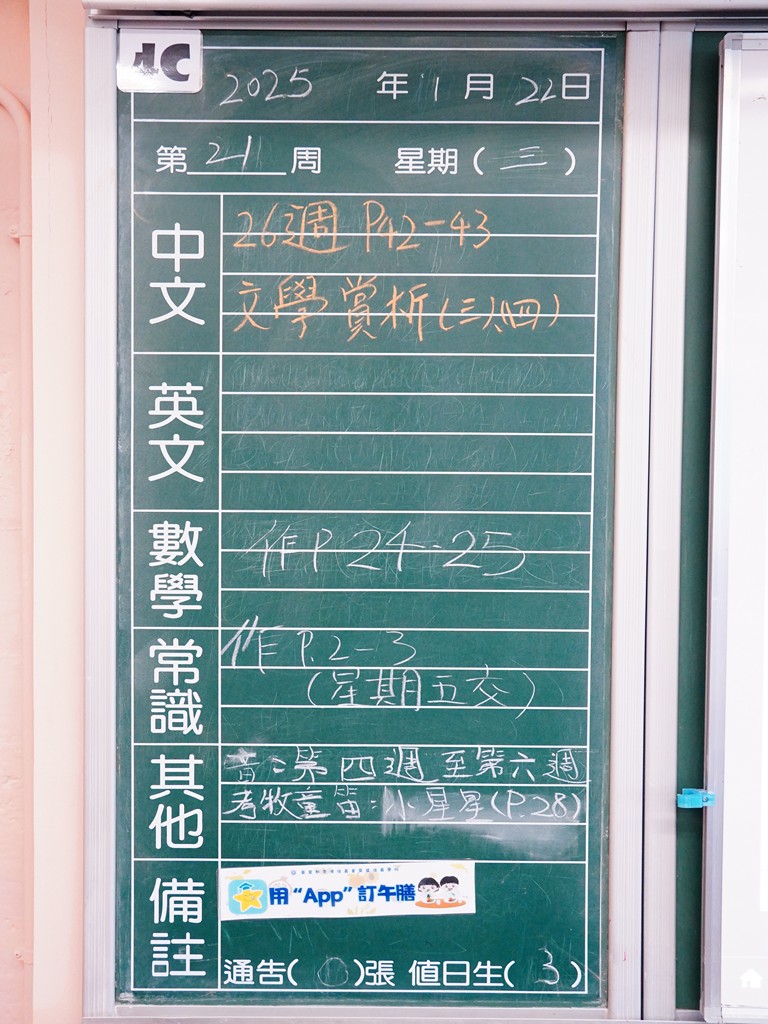 4C
2025 年 1 月 22 日
第 21 周 星期(三)
中文
26週 P42-43
文學賞析(三)(四)
英文
數學
作P. 24-25
常識
作 P.2-3
(星期五交)
其他
音:第四週至第六週
考牧童笛:小星星(P.28)
備註
用“App”訂午膳
通告(0)張 值日生(3)